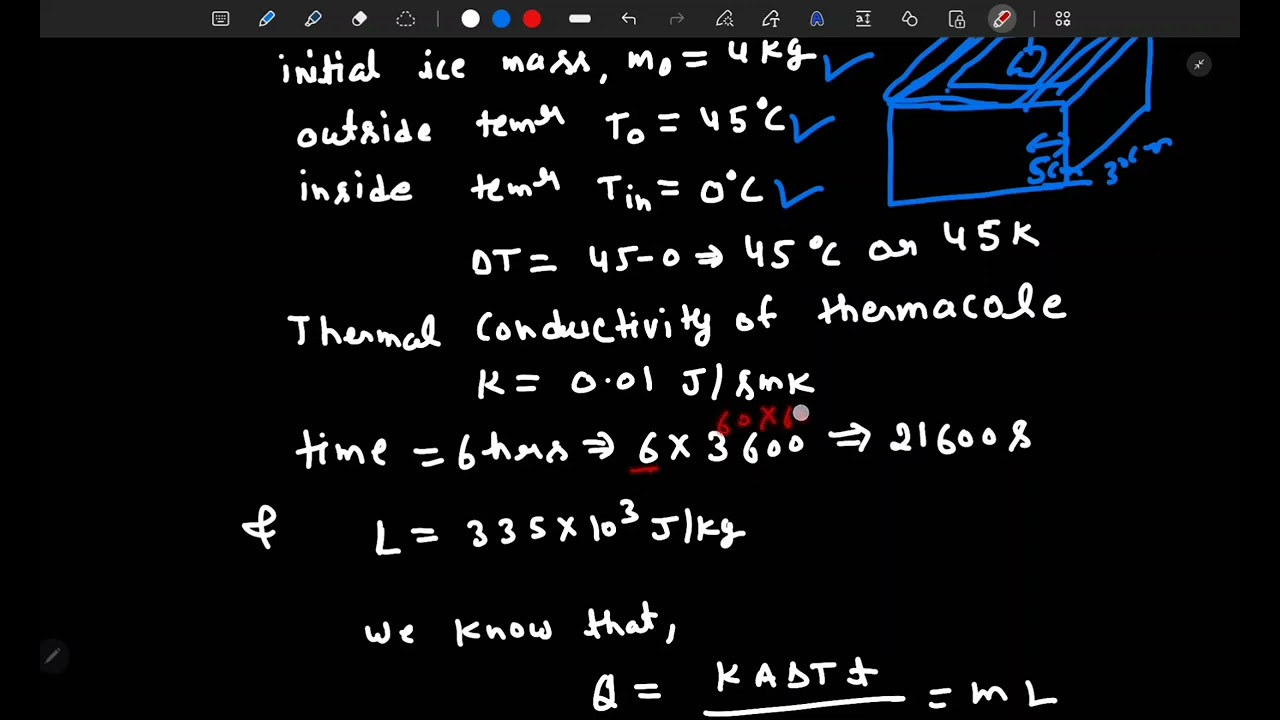 initial ice mass, m₀ = 4 kg
outside temʳ T₀ = 45°C
inside temʳ Tᵢₙ = 0°C
5cm 30cm
ΔT = 45-0 ⇒ 45°C or 45K
Thermal Conductivity of thermacole
K = 0.01 J/smK
60×6
time = 6 hrs ⇒ 6 × 3600 ⇒ 21600 s
& L = 335×10³ J/kg
we know that,
Q = KAΔTt = mL